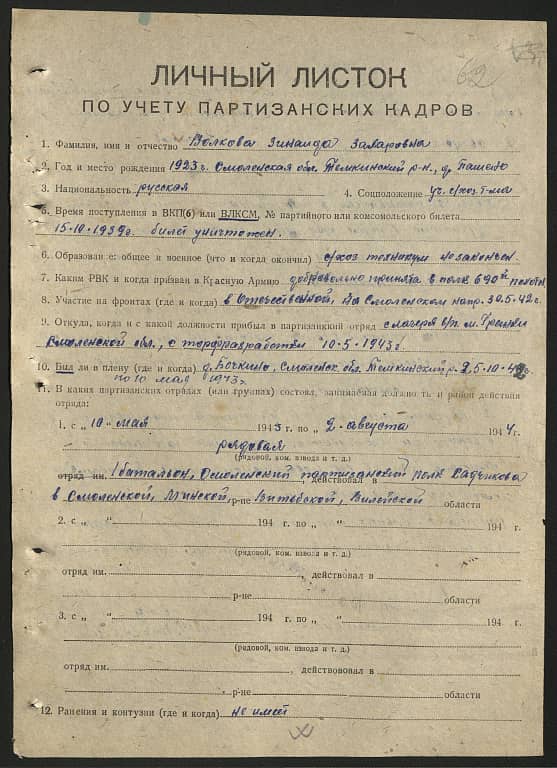 62
ЛИЧНЫЙ ЛИСТОК
ПО УЧЕТУ ПАРТИЗАНСКИХ КАДРОВ
1. Фамилия, имя и отчество Волкова Зинаида Захаровна
2. Год и место рождения 1923 г. Смоленская обл. Темкинский р-н., д. Пашено
3. Национальность русская 4. Соцположение уч. с/хоз. т-ма
5. Время поступления в ВКП(б) или ВЛКСМ, № партийного или комсомольского билета
15-10-1939г. билет уничтожен.
6. Образование: общее и военное (что и когда окончил) с/хоз техникум незакончен
7. Каким РВК и когда призван в Красную Армию добровольно принята в полк 690й
8. Участие на фронтах (где и когда) в Отечественной, на Смоленском напр. 30.5.42 г.
9. Откуда, когда и с какой должности прибыл в партизанский отряд с лагеря в/п. м.
Смоленской обл., с торфразработки 10-5-1943г
10. Был ли в плену (где и когда) д. Бочкино, Смоленск. обл. Темкинский р-н, 5-10-42
по 10 мая 1943г.
11. В каких партизанских отрядах (или группах) состоял, занимаемая должность и район действия
отряда:
1. с „ 10 " мая 1943 г. по „ 2 " августа 1944 г.
рядовая
(рядовой, ком. взвода и т. д.)
отряд им. 1 батальон, Смоленский партизанский полк Садчикова действовал в
в Смоленской, Минской, р-не Витебской, Вилейской области
2. с „ " 194 г. по „ " 194 г.
(рядовой, ком. взвода и т. д.)
отряд им. , действовал в
р-не области
3. с „ " 194 г. по „ " 194 г.
(рядовой, ком. взвода и т. д.)
отряд им. , действовал в
р-не области
12. Ранения и контузии (где и когда) не имею